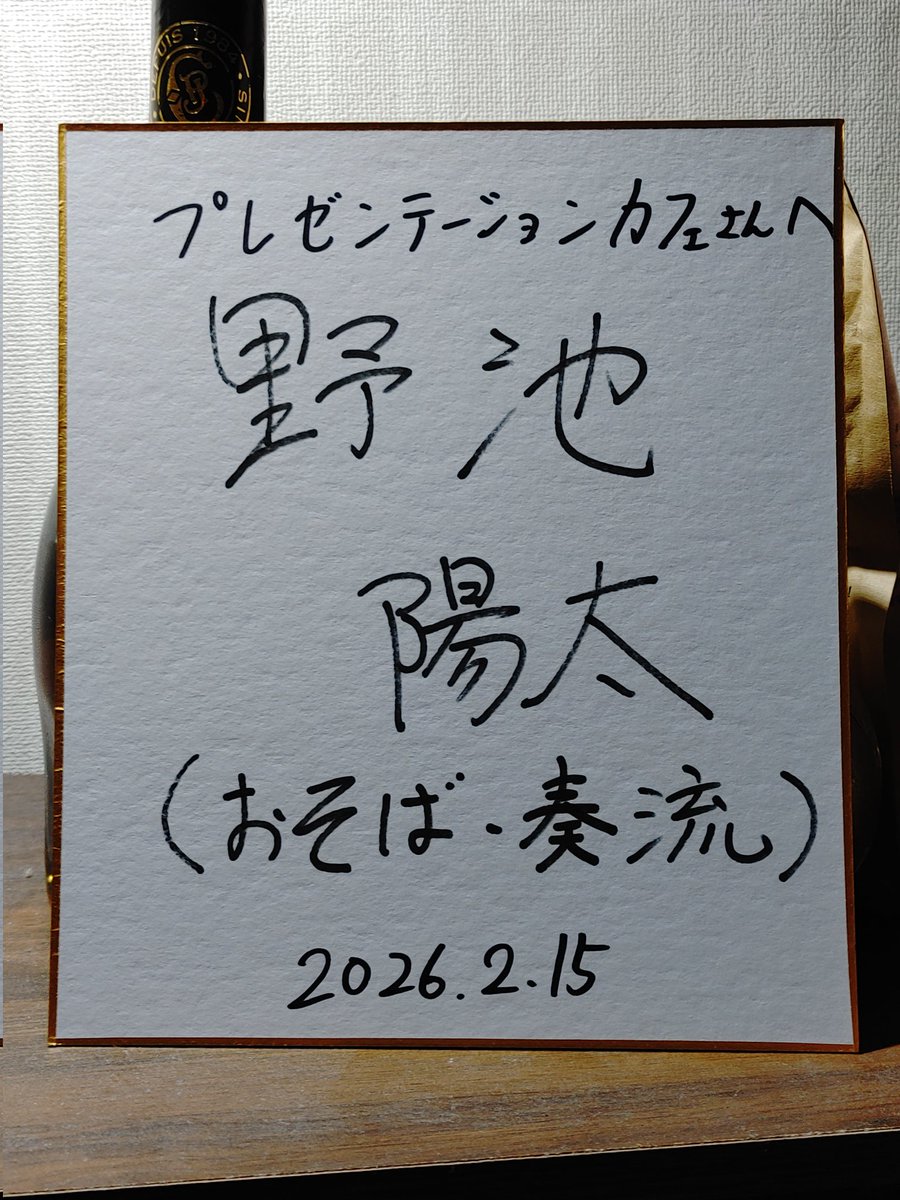 DEPUIS 1984
プレゼンテーションカフェさんへ
野池
陽太
(おそば・奏流)
2026.2.15